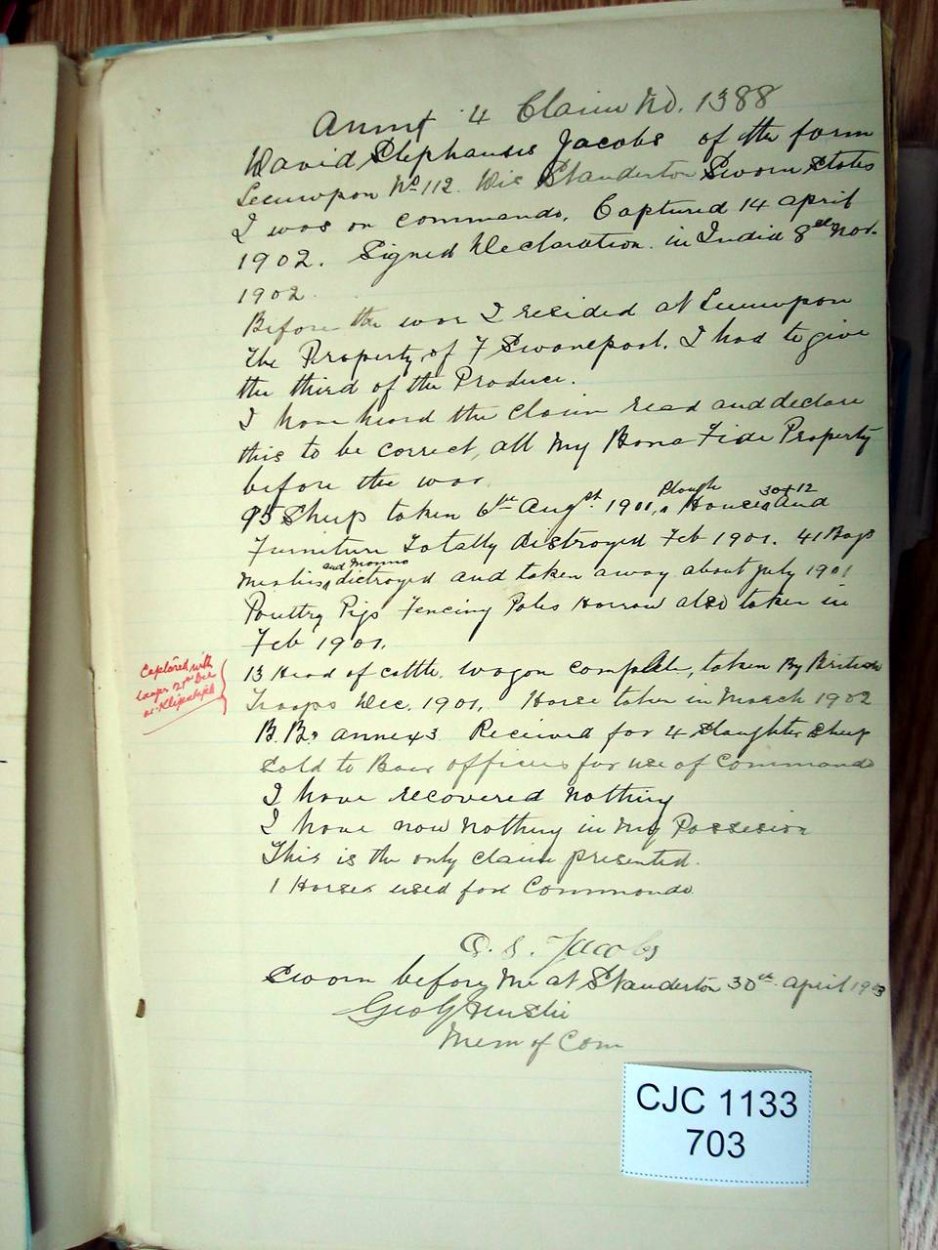 Annex 4 Claim No. 1388
David Stephanus Jacobs of the farm
Leeuwpan No 112. Dis Standerton Sworn states
I was on commando. Captured 14 april
1902. Signed Declaration in India 8th Nov.
1902.
Before the war I resided at Leeuwpan
the Property of F Swanepoel. I had to give
the third of the Produce.
I have heard the claim read and declare
this to be correct, all my Bona Fide Property
before the war.
Plough 30x12
95 Sheep taken 6th Augst 1901, Houses and
Furniture Totally distroyed Feb 1901. 41 Bags
and Manna
Mealies distroyed and taken away about July 1901
Poultry Pigs Fencing Poles Harrow also taken in
Feb 1901.
Captured with
laager 21st Dec
at
13 Head of cattle. wagon complete, taken By British
Troops Dec. 1901. Horse taken in March 1902
B.B. annex 3 Received for 4 Slaughter Sheep
Sold to Boer officers for use of Commando
I have recovered nothing
I have now nothing in my Possesion
This is the only claim presented.
1 Horses used for Commando
D. S. Jacobs
Sworn before me at Standerton 30th april 1903
Geo
Mem of Com
CJC 1133
703